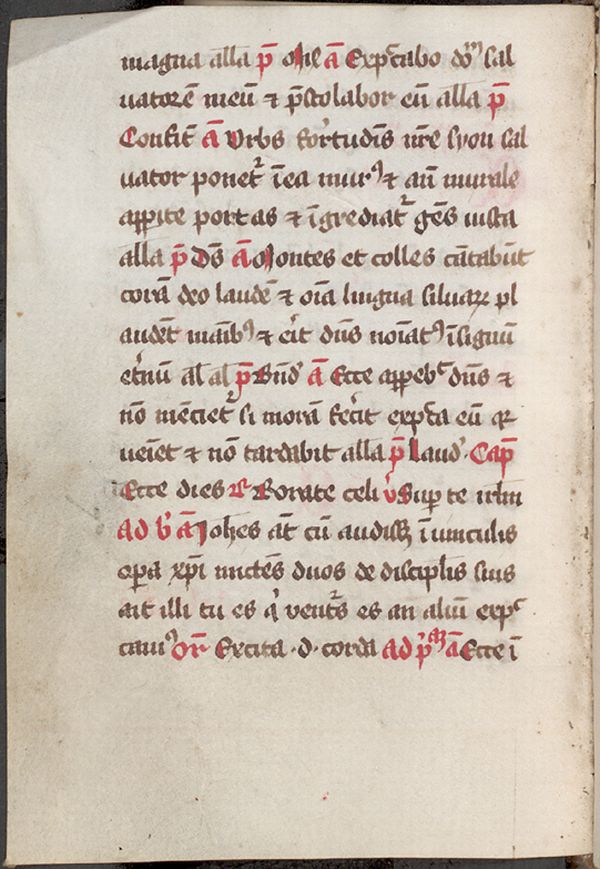 magna alla p̄ ā Expc̄tabo sal
uatorē meū ⁊ p̄stolabor eū alla p̄
Confit̄ ā Vrbs fortitudīs nr̄e syon sal
uator ponet᷑ ī ea murꝰ ⁊ an̄ murale
app̄ite portas ⁊ īgrediat᷑ gēs iusta
alla p̄ Dn̄s ā Montes et colles cātabūt
corā deo laudē ⁊ oīa lingna siluaꝝ pl
audēt maībꝰ ⁊ dūs ī signū
et̄nū al̄ al p̄ ā Ecce dūs ⁊
nō mēciet᷑ si morā fec̄it expc̄ta eū
ueīet ⁊ nō tardabit alla p̄ laud᷒ Cap̄
Ecce dies ℟ Rorate celi v̄ Sup̄ te irl̄m
ad b̄ ā Joh̄es at̄ cū audiss; ī uinculis
op̄a xp̄i mictēs duos de discipl̄is suis
ait illi tu es q̇ vent᷑s es an aliū expc̄
tamꝰ or̄ Excita · d · corda ad p̄ ā Ecce ī